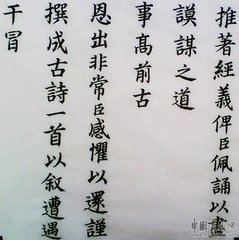 推著經義俾臣佩誦以盡
謨謀之道
事髙前古
恩出非常臣感懼以還謹
撰成古詩一首以敘遭遇
干冒